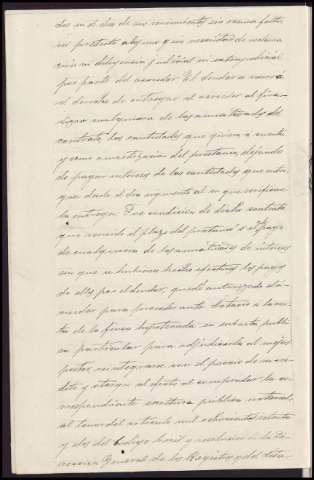 dos en el dia de su vencimiento sin excusa falta
ni pretexto alguno y sin necesidad de reclama
cion ni diligencia judicial ni extrajudicial
por parte del acreedor. El deudor se reserva
el derecho de entregar al acreedor al fina-
lizar cualquiera de las anualidades del
contrato, las cantidades que quiera a cuenta
y como amortizacion del prestamo, dejando
de pagar intereses de las cantidades que entre-
gue desde el dia siguiente al en que verifique
la entrega. Fue condicion de dicho contrato
que vencido el plazo del prestamo o el pago
de cualquiera de las anualidades de intereses
sin que se hubiesen hecho efectivos los pagos
de ellos por el deudor, quedó autorizado el a-
creedor para proceder ante Notario a la ven-
ta de la finca hipotecada en subasta publi-
ca particular para adjudicarla al mejor
postor, reintegrarse con el precio de su cre-
dito y otorgar al efecto al comprador la co-
rrespondiente escritura publica notarial,
al tenor del articulo mil ochocientos setenta
y dos del Codigo Civil y resolucion de la Di-
reccion General de los Registros y del Nota-